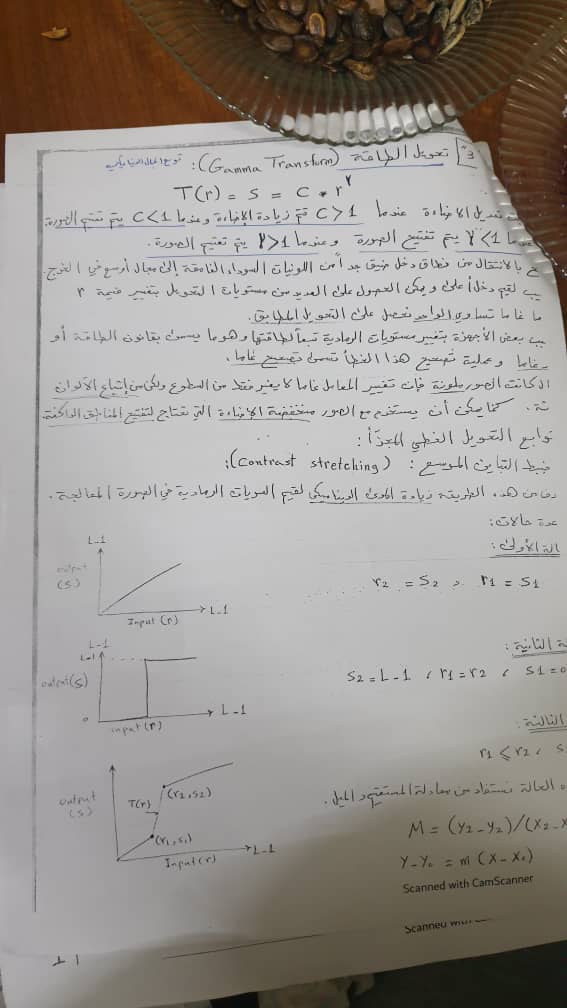 3] تحويل الطاقة (Gamma Transform): توسع المجال الديناميكي
T(r) = s = C * r^γ
تعديل الإضاءة عندما C>1 تم زيادة الإضاءة وعندما C<1 يتم تعتيم الصورة.
γ<1 يتم تفتيح الصورة وعندما γ>1 يتم تعتيم الصورة.
بالانتقال من نطاق دخل ضيق جداً من اللونيات السوداء الغامقة إلى مجال أوسع في الخرج.
لقيم دخل أعلى ويمكن الحصول على العديد من مستويات التحويل بتغير قيمة γ
غاما تساوي الواحد نحصل على التحويل المطابق.
بعض الأجهزة بتغيير مستويات الرمادية تبعاً لطاقتها وهو ما يسمى بقانون الطاقة أو
غاما وعملية تصحيح هذا الخطأ تسمى تصحيح غاما.
كانت الصور ملونة فإن تغيير المعامل غاما لا يغير فقط من السطوع ولكن من إشباع الألوان
كما يمكن أن يستخدم مع الصور منخفضة الإضاءة التي تحتاج لتفتيح المناطق الداكنة
توابع التحويل الخطي المجزأ:
ضبط التباين الموسع: (Contrast stretching):
من هذه الطريقة زيادة المدى الديناميكي لقيم السويات الرمادية في الصورة المعالجة.
عدة حالات:
الأولى:
L-1
output
(s)
Input (r)
L-1
r2 = s2 , r1 = s1
الثانية:
s2 = L-1 , r1 = r2 , s1 = 0
L-1
L-1
output(s)
0
input(r)
L-1
الثالثة:
r1 ⩽ r2 ,
الحالة نستفاد من معادلة المستقيم والميل.
M = (Y2 - Y2) / (X2 -
Y - Y0 = m (X - X0)
output
(s)
T(r)
(r2, s2)
(r1, s1)
Input(r)
L-1
Scanned with CamScanner
Scanned